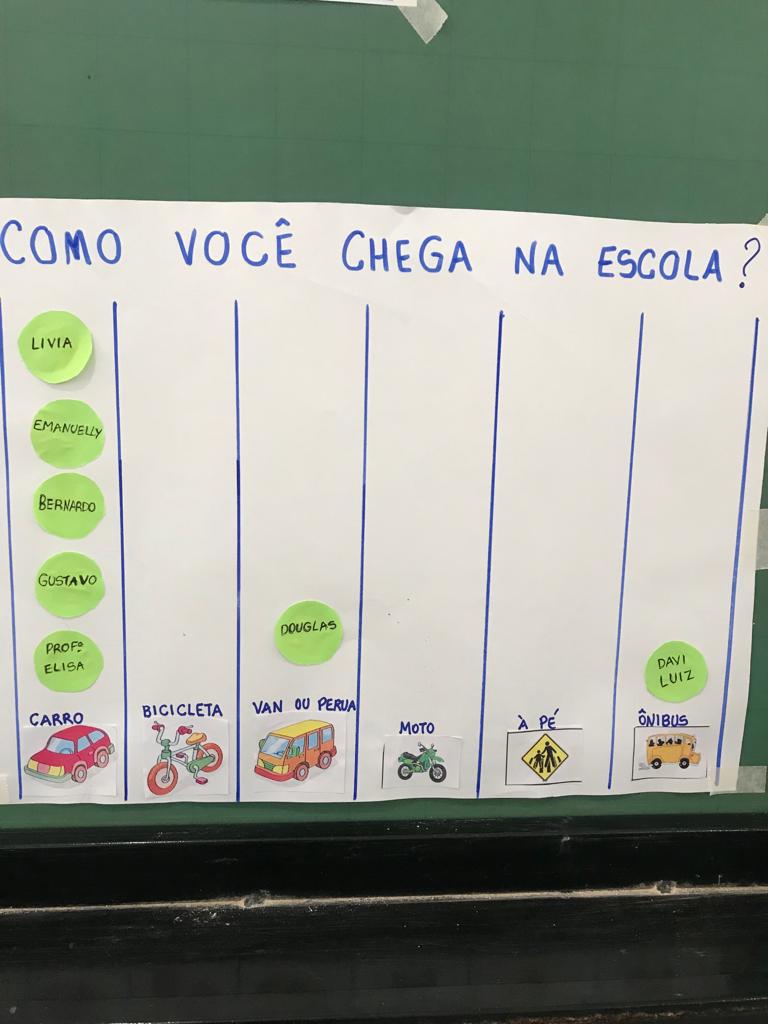 COMO VOCÊ CHEGA NA ESCOLA?
LIVIA
EMANUELLY
BERNARDO
GUSTAVO
PROFª
ELISA
DOUGLAS
DAVI
LUIZ
CARRO
BICICLETA
VAN OU PERUA
MOTO
À PÉ
ÔNIBUS